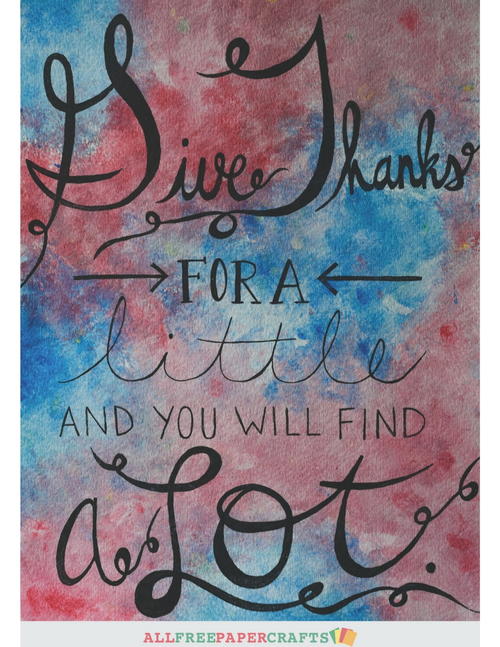 Give Thanks
FOR A
little
AND YOU WILL FIND
a Lot.
ALLFREEPAPERCRAFTS